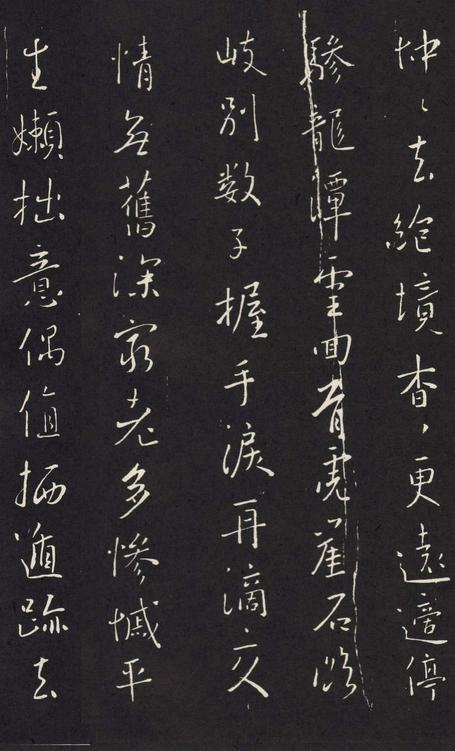 忡忡去絶境杳杳更遠適停
驂龍潭雲回首虎崖石臨
岐別数子握手淚再滴交
情無舊深窮老多慘慽平
生嬾拙意偶值栖遁跡去